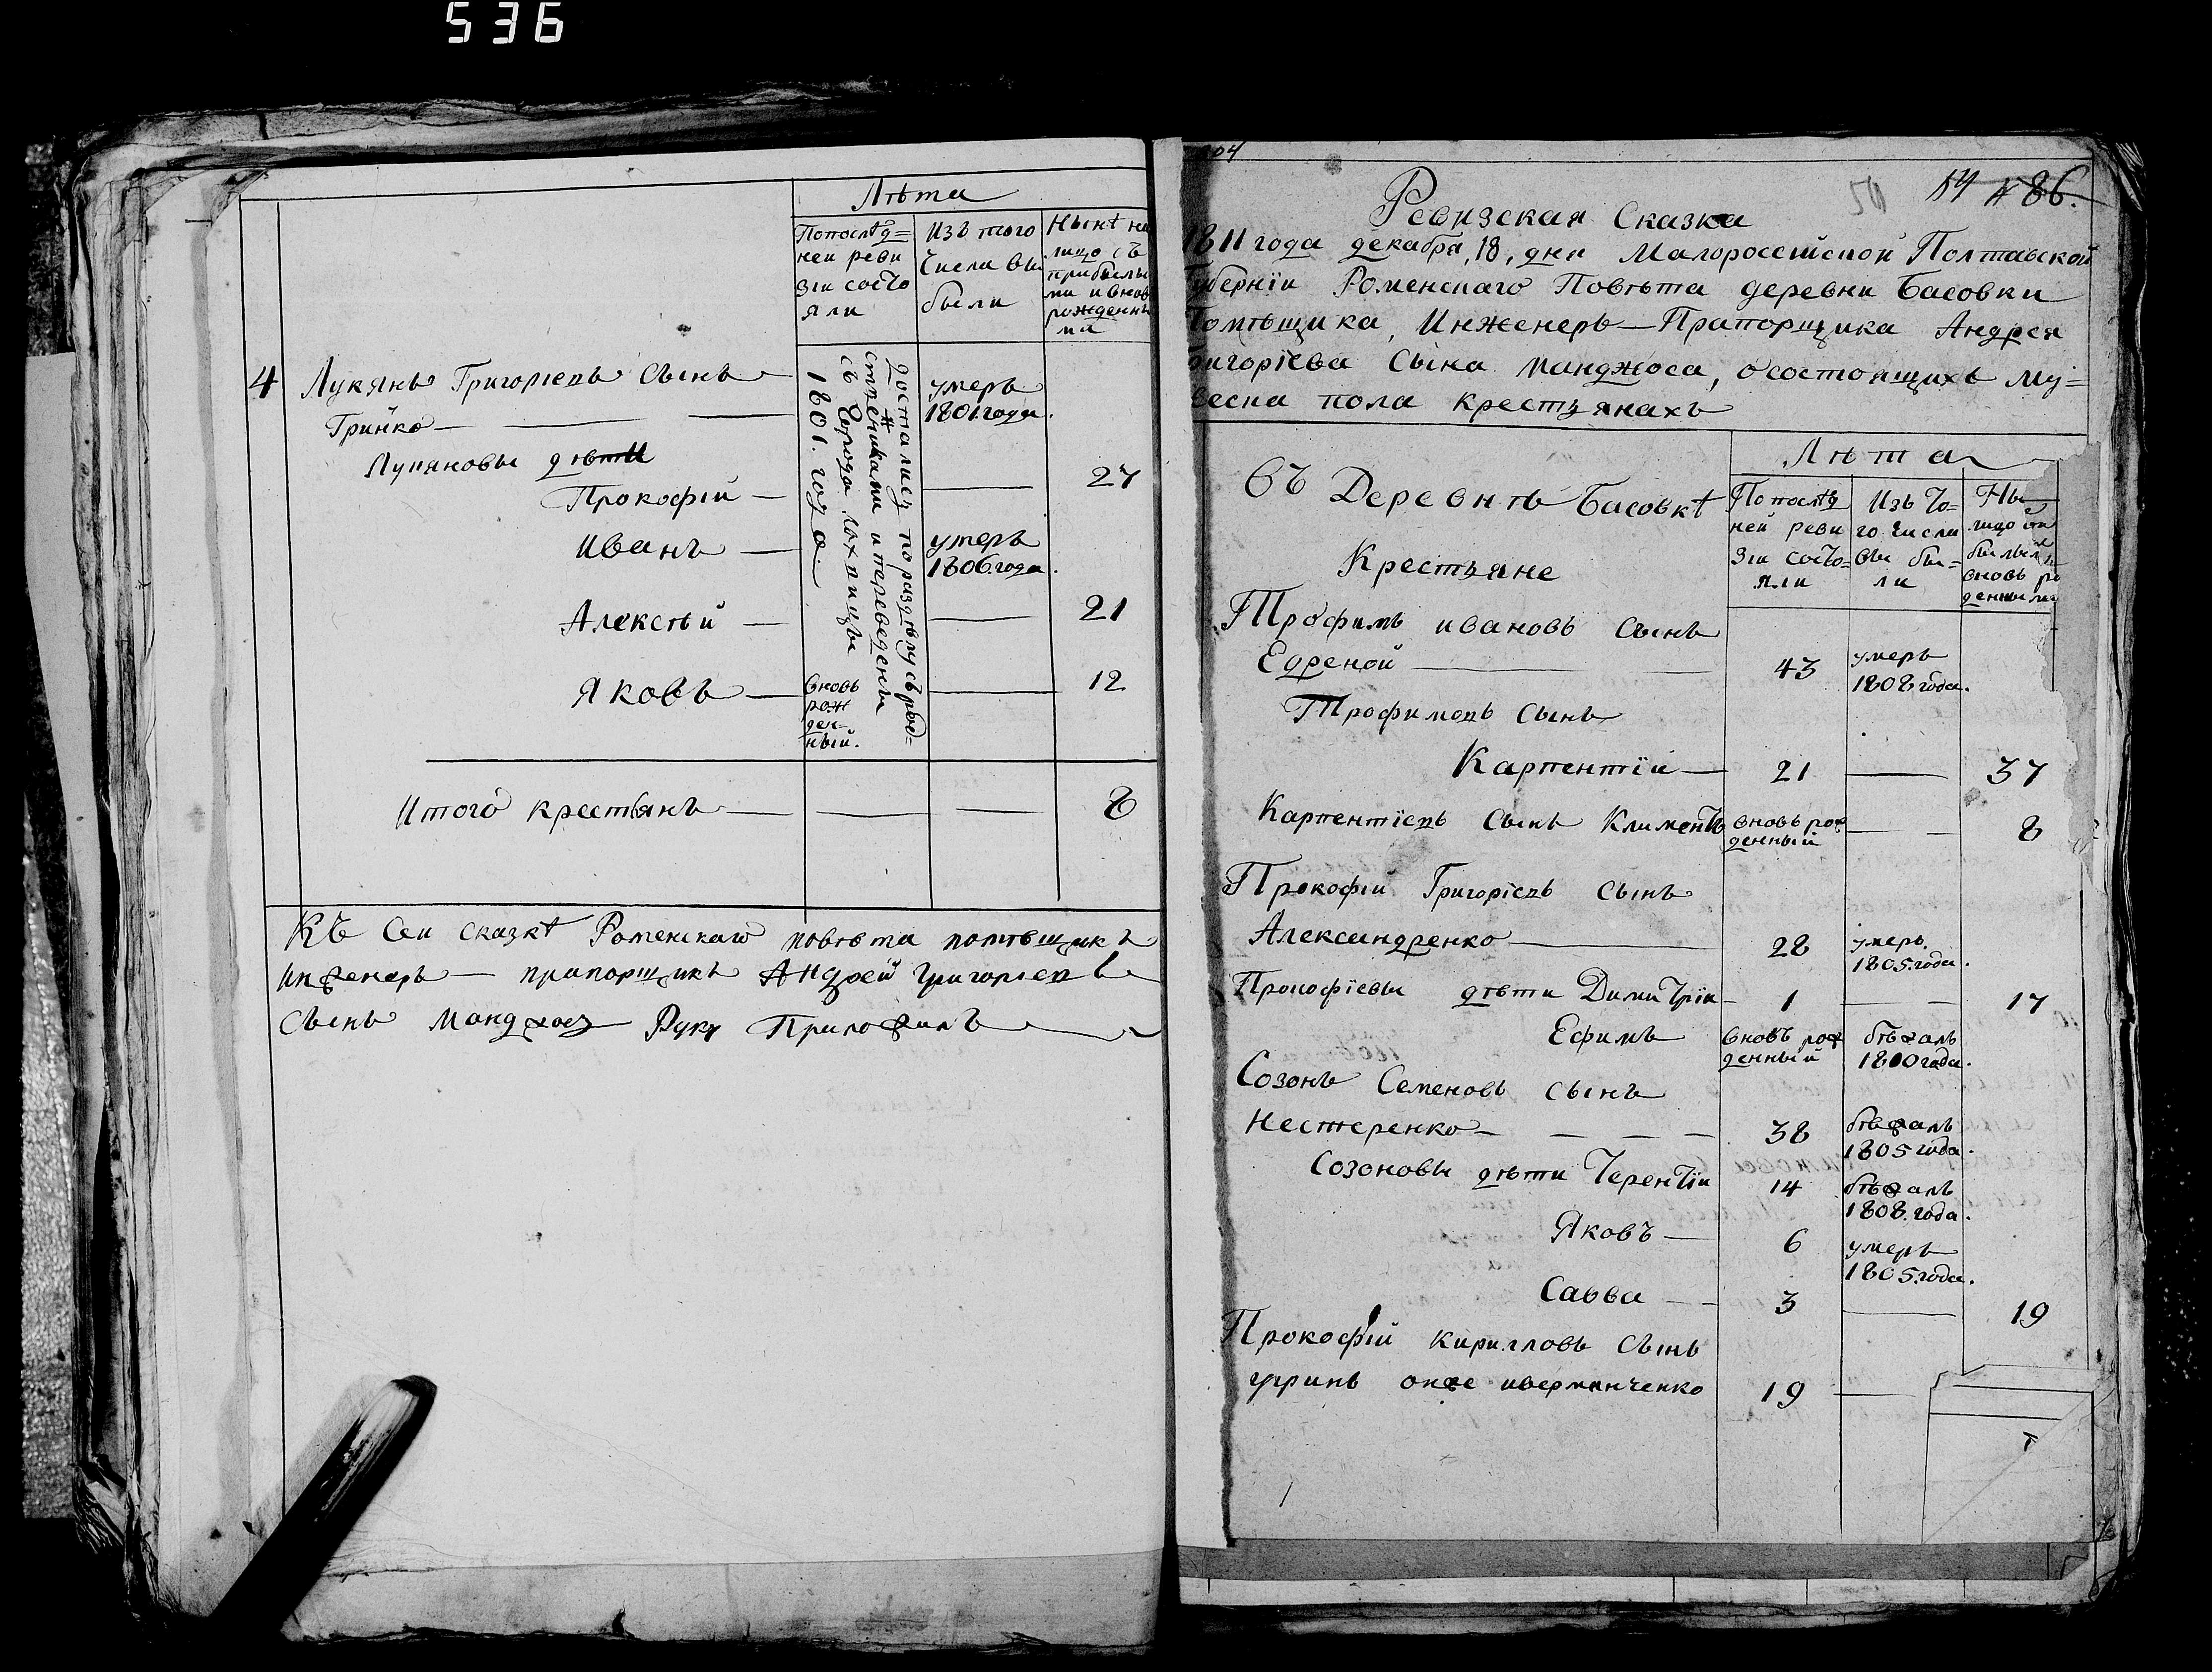 536
Лѣта
Попослѣд=
неи реви
зіи состо
яли
Изъ того
Числа вы
были
Нынѣ на
лицо съ
прибылы
ми ивнов
рожденны
ми
4 Лукянъ Григоріевъ Сынъ
Гринко
умеръ
1801.года.
Лукяновы дѣти
Прокофіи 27
Иванъ
умеръ
1806.года.
Алексѣй 21
Яковъ
вновь
рож
ден=
ный.
12
достались по раздѣлу съ род=
ственниками и переведены
съ Города Лохвицы
1801. года
Итого крестьянъ 8
Къ Сеи сказкѣ Роменскаго повѣта помѣщикъ
инженеръ — прапорщикъ Андрей Григоріевъ
Сынъ Манджось Руку Приложилъ
504
50 54 № 86.
Ревизская Сказка
1811 года декабря, 18, дня Малороссійской Полтавской
Губерніи Роменскаго Повѣта деревни Басовки
Помѣщика, Инженеръ—Прапорщика Андрея
Григоріева Сына Манджоса, осостоящихъ му=
ескa пола крестьянахъ
Лѣта
Въ Деревнѣ Басовкѣ
Крестьяне
Попослѣд
ней реви
зіи состо=
яли
Изъ То=
го числа
вы бы=
ли
Ны
лицо
былы
вновь ро
денными
Трофимъ ивановъ Сынъ
Едреной 43
умеръ
1808 года.
Трофимовъ Сынъ
Карпентій 21 37
Карпентіевъ Сынъ Климентъ вновь рож
денный
8
Прокофій Григоріевъ сынъ
Александренко 28
умеръ.
1805.года.
Прокофіевы дѣти Димитрій 1 17
Ефимъ
вновъ рож
денный
бѣжалъ
1810 года.
Созонъ Семеновъ сынъ
Нестеренко 38
бѣжалъ
1805 года.
Созоновы дѣти Терентій 14
бѣжалъ
1808.года.
Яковъ 6
умеръ
1805.года.
Савва 3 19
Прокофій Кирилловъ Сынъ
Уринъ онже иверманченко 19